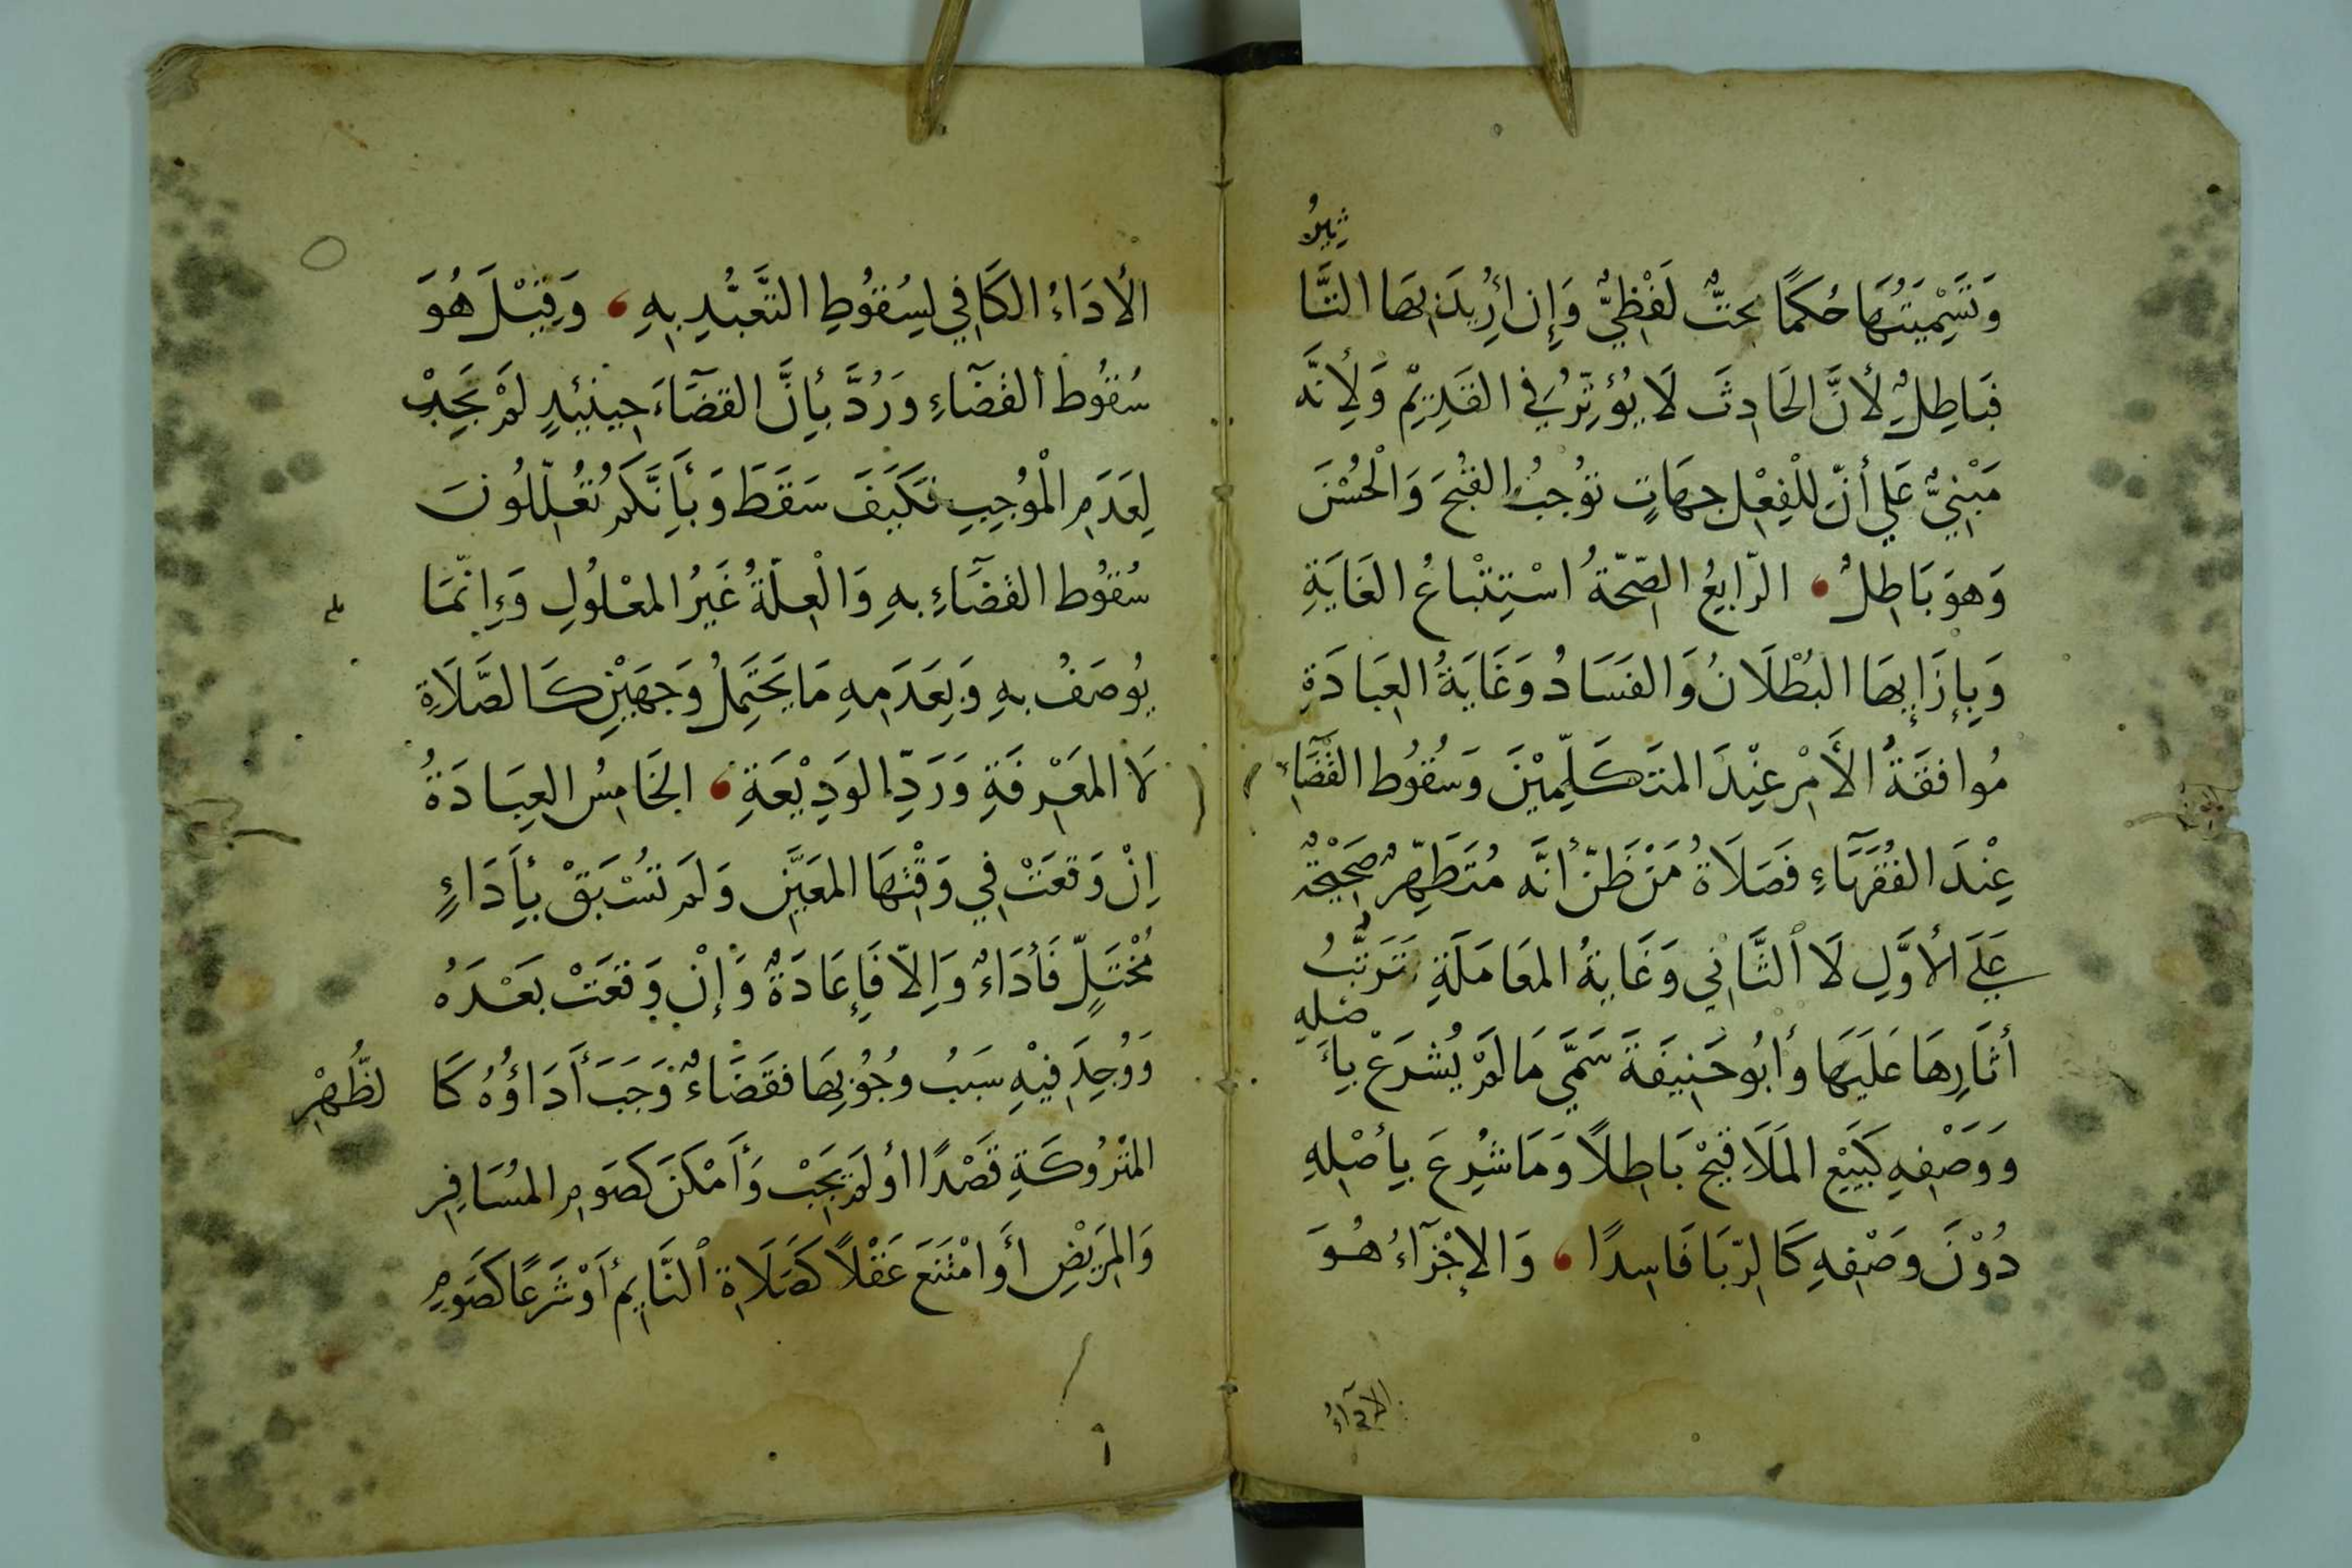 وَتَسْمِيَتُهَا حُكْمًا بَحثٌ لَفْظِيٌّ وَإِن أُرِيدَ بِهَا التَّا
ثِيرُ
فَبَاطِلٌ لِأَنَّ الحَادِثَ لَا يُؤَثِّرُ فِي القَدِيْمِ وَلِأَنَّه
مَبْنِيٌّ عَلي أنّ لِلْفِعْلِ جِهَاتٍ تُوْجِبُ القُبْحَ وَالْحُسْنَ
وَهوَ بَاطِلٌ الرّابِعُ الصِّحّةُ اسْتِتْبَاعُ الغَايَةِ
وَبِإِزَإِبهَا البُطْلَانُ وَالفَسَادُ وَغَايَةُ العِبَادَةِ
مُوافقَةُ الأَمْرِ عِنْدَ المتَكَلِّمِيْنَ وَسُقُوُط القَضَآءِ
عِنْدَ الفُقَهَآءِ فَصَلَاةُ مَنْ ظَنّ أنَّه مُتَطَهِّرٌ صَحِيْحَةٌ
عَلَي الأوَّلِ لَا الثَّانِي وَغَايةُ المعَامَلَةِ تَرَتُّبُ
أثَارِهَا عَلَيهَا وأبُو حَنِيفَةَ سَمَّي مَا لَمْ يُشْرَعْ بِأَ
صْلِهِ
وَوَصْفِهِ كَبَيْعِ المَلَاقِيْحِ بَاطِلاً وَمَا شُرِعَ بِأصْلِهِ
دُوْنَ وصْفِهِ كَالرِّبَا فَاسِدًا وَالإجْزَآءُ هُوَ
الأدآءُ
الأدَاءُ الكَافِي لِسُقُوُطِ التَّعَبُّدِ بِهِ وَقِيْلَ هُوَ
سُقُوُط القَضَآءِ وَرُدَّ بِأَنَّ القَضَآءَ حِينَئِدٍ لَمْ يَجِبْ
لِعَدَمِ الْمُوْجِبِ فَكَيَفَ سَقَطَ وَبأَنَّكم تُعَلِّلُونَ
سُقوُط القَضَآءِ بهِ وَالْعِلّةُ غَيْرُ المعْلُولِ وَإِنّمَا
يُوصَفُ بهِ وَبِعَدَمِهِ مَا يَحْتَمِلُ وَجهَيْنِ كَالصَّلَاةِ
لَا المَعْرِفَةِ وَرَدِّ الوَدِيْعَةِ الخَامِسُ العِبَادَةُ
اِنْ وَقعَتْ فِي وَقْتِهَا المعَيَّنِ وَلَم تُسْبَقْ بِأَدَاءٍ
مُخْتَلٍّ فَأدَاءٌ وَإِلّا فَإِعَادَةٌ وَإِنْ وَقعَتْ بَعْدَهُ
وَوُجِدَ فِيْهِ سَبَبُ وجُوْبِهَا فقَضَاءٌ وَجَبَ أَدَاؤُهُ كَا
لظُّهْرِ
المتْرُوكَةِ قَصْدًا اوْ لَمْ يَجِبْ وَأَمْكَنَ كَصَومِ المسَافِرِ
وَالمرَيْضِ أوِ امْتَنَعَ عَقْلاً كَصَلَاةِ النَّايِمِ أَوْ شَرعًا كَصَومِ